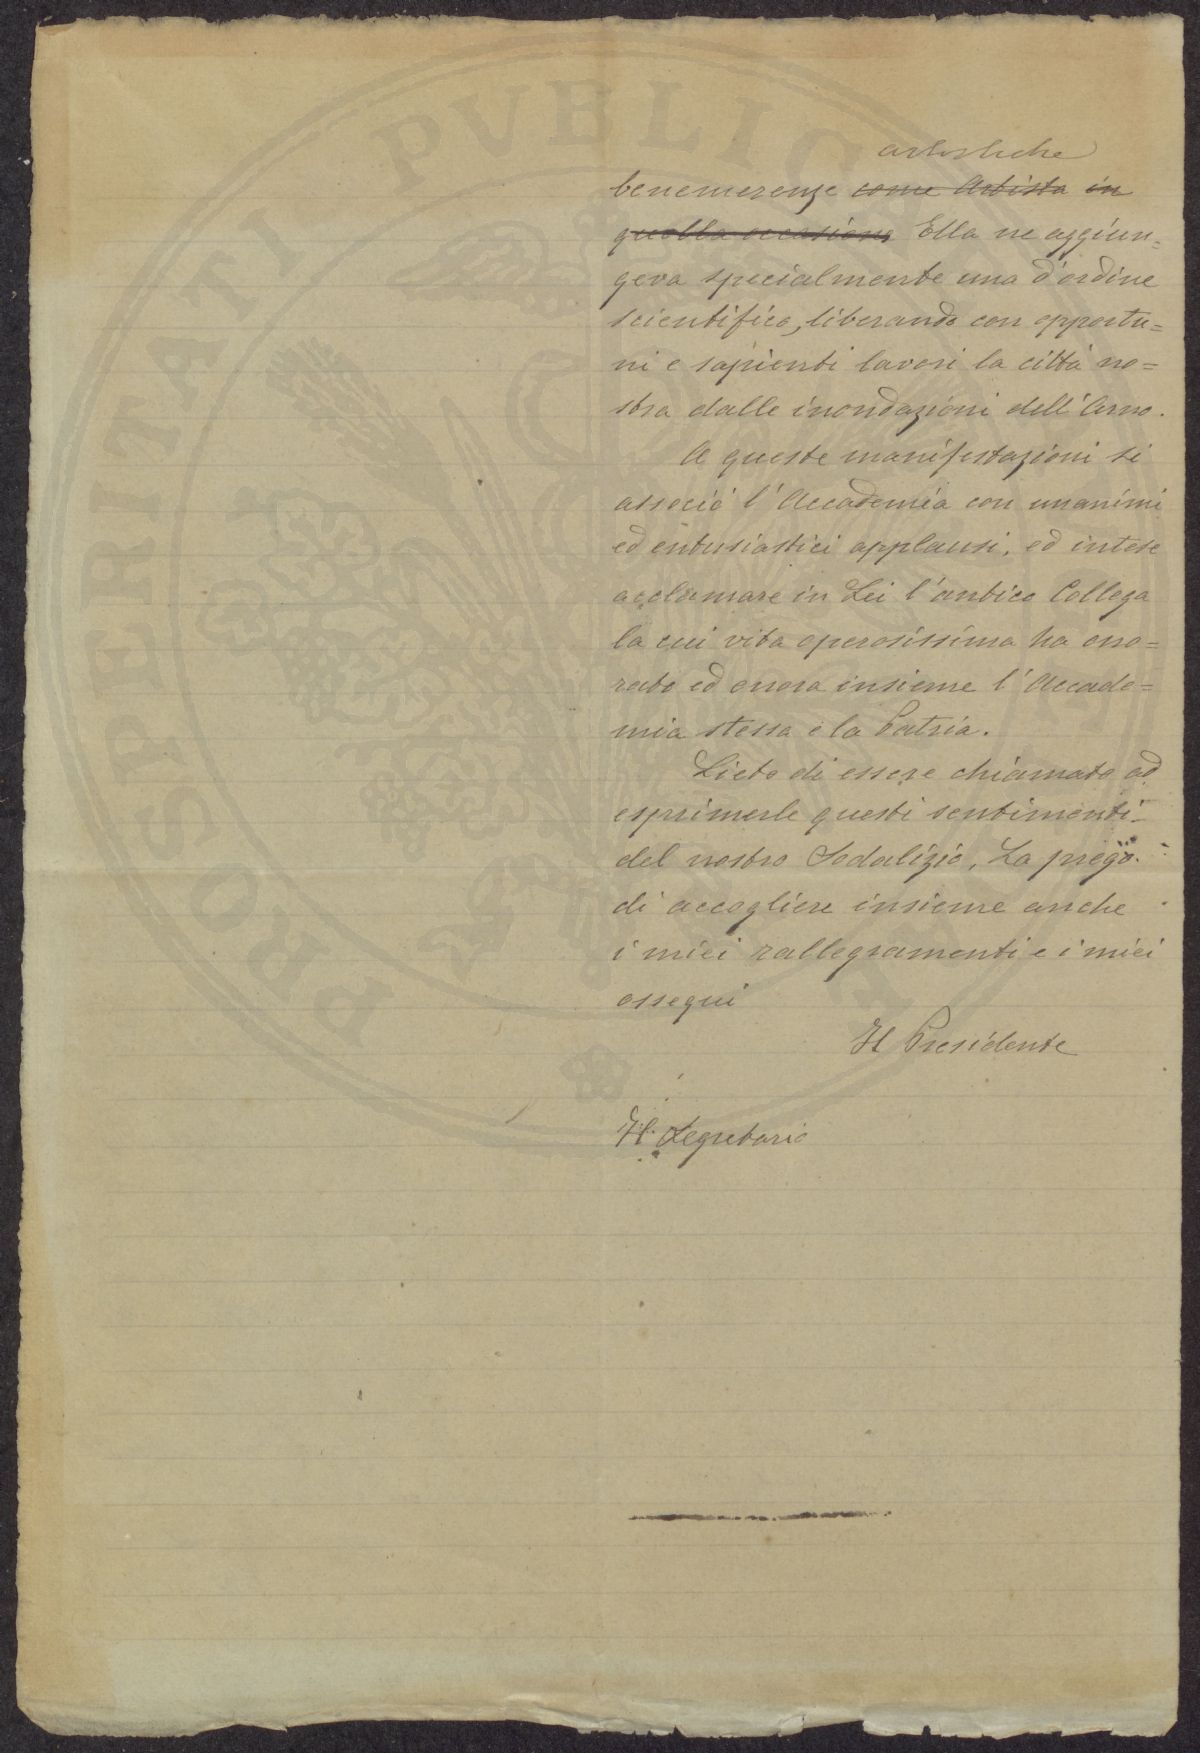 artistiche
benemerenze come Artista in
quella occasione Ella ne aggiun=
geva specialmente una d'ordine
scientifico, liberando con opportu=
ni e sapienti lavori la città no=
stra dalle inondazioni dell'Arno.
A queste manifestazioni si
associò l'Accademia con unanimi
ed entusiastici applausi, ed intese
acclamare in Lei l'antico Collega
la cui vita operosissima ha ono=
rato ed onora insieme l'Accade=
mia stessa e la Patria.
Lieto di essere chiamato ad
esprimerle questi sentimenti
del nostro Sodalizio, La prego
di accogliere insieme anche
i miei rallegramenti e i miei
ossequi
Il Presidente
Il Segretario
PROSPERITATI PVBLICAE